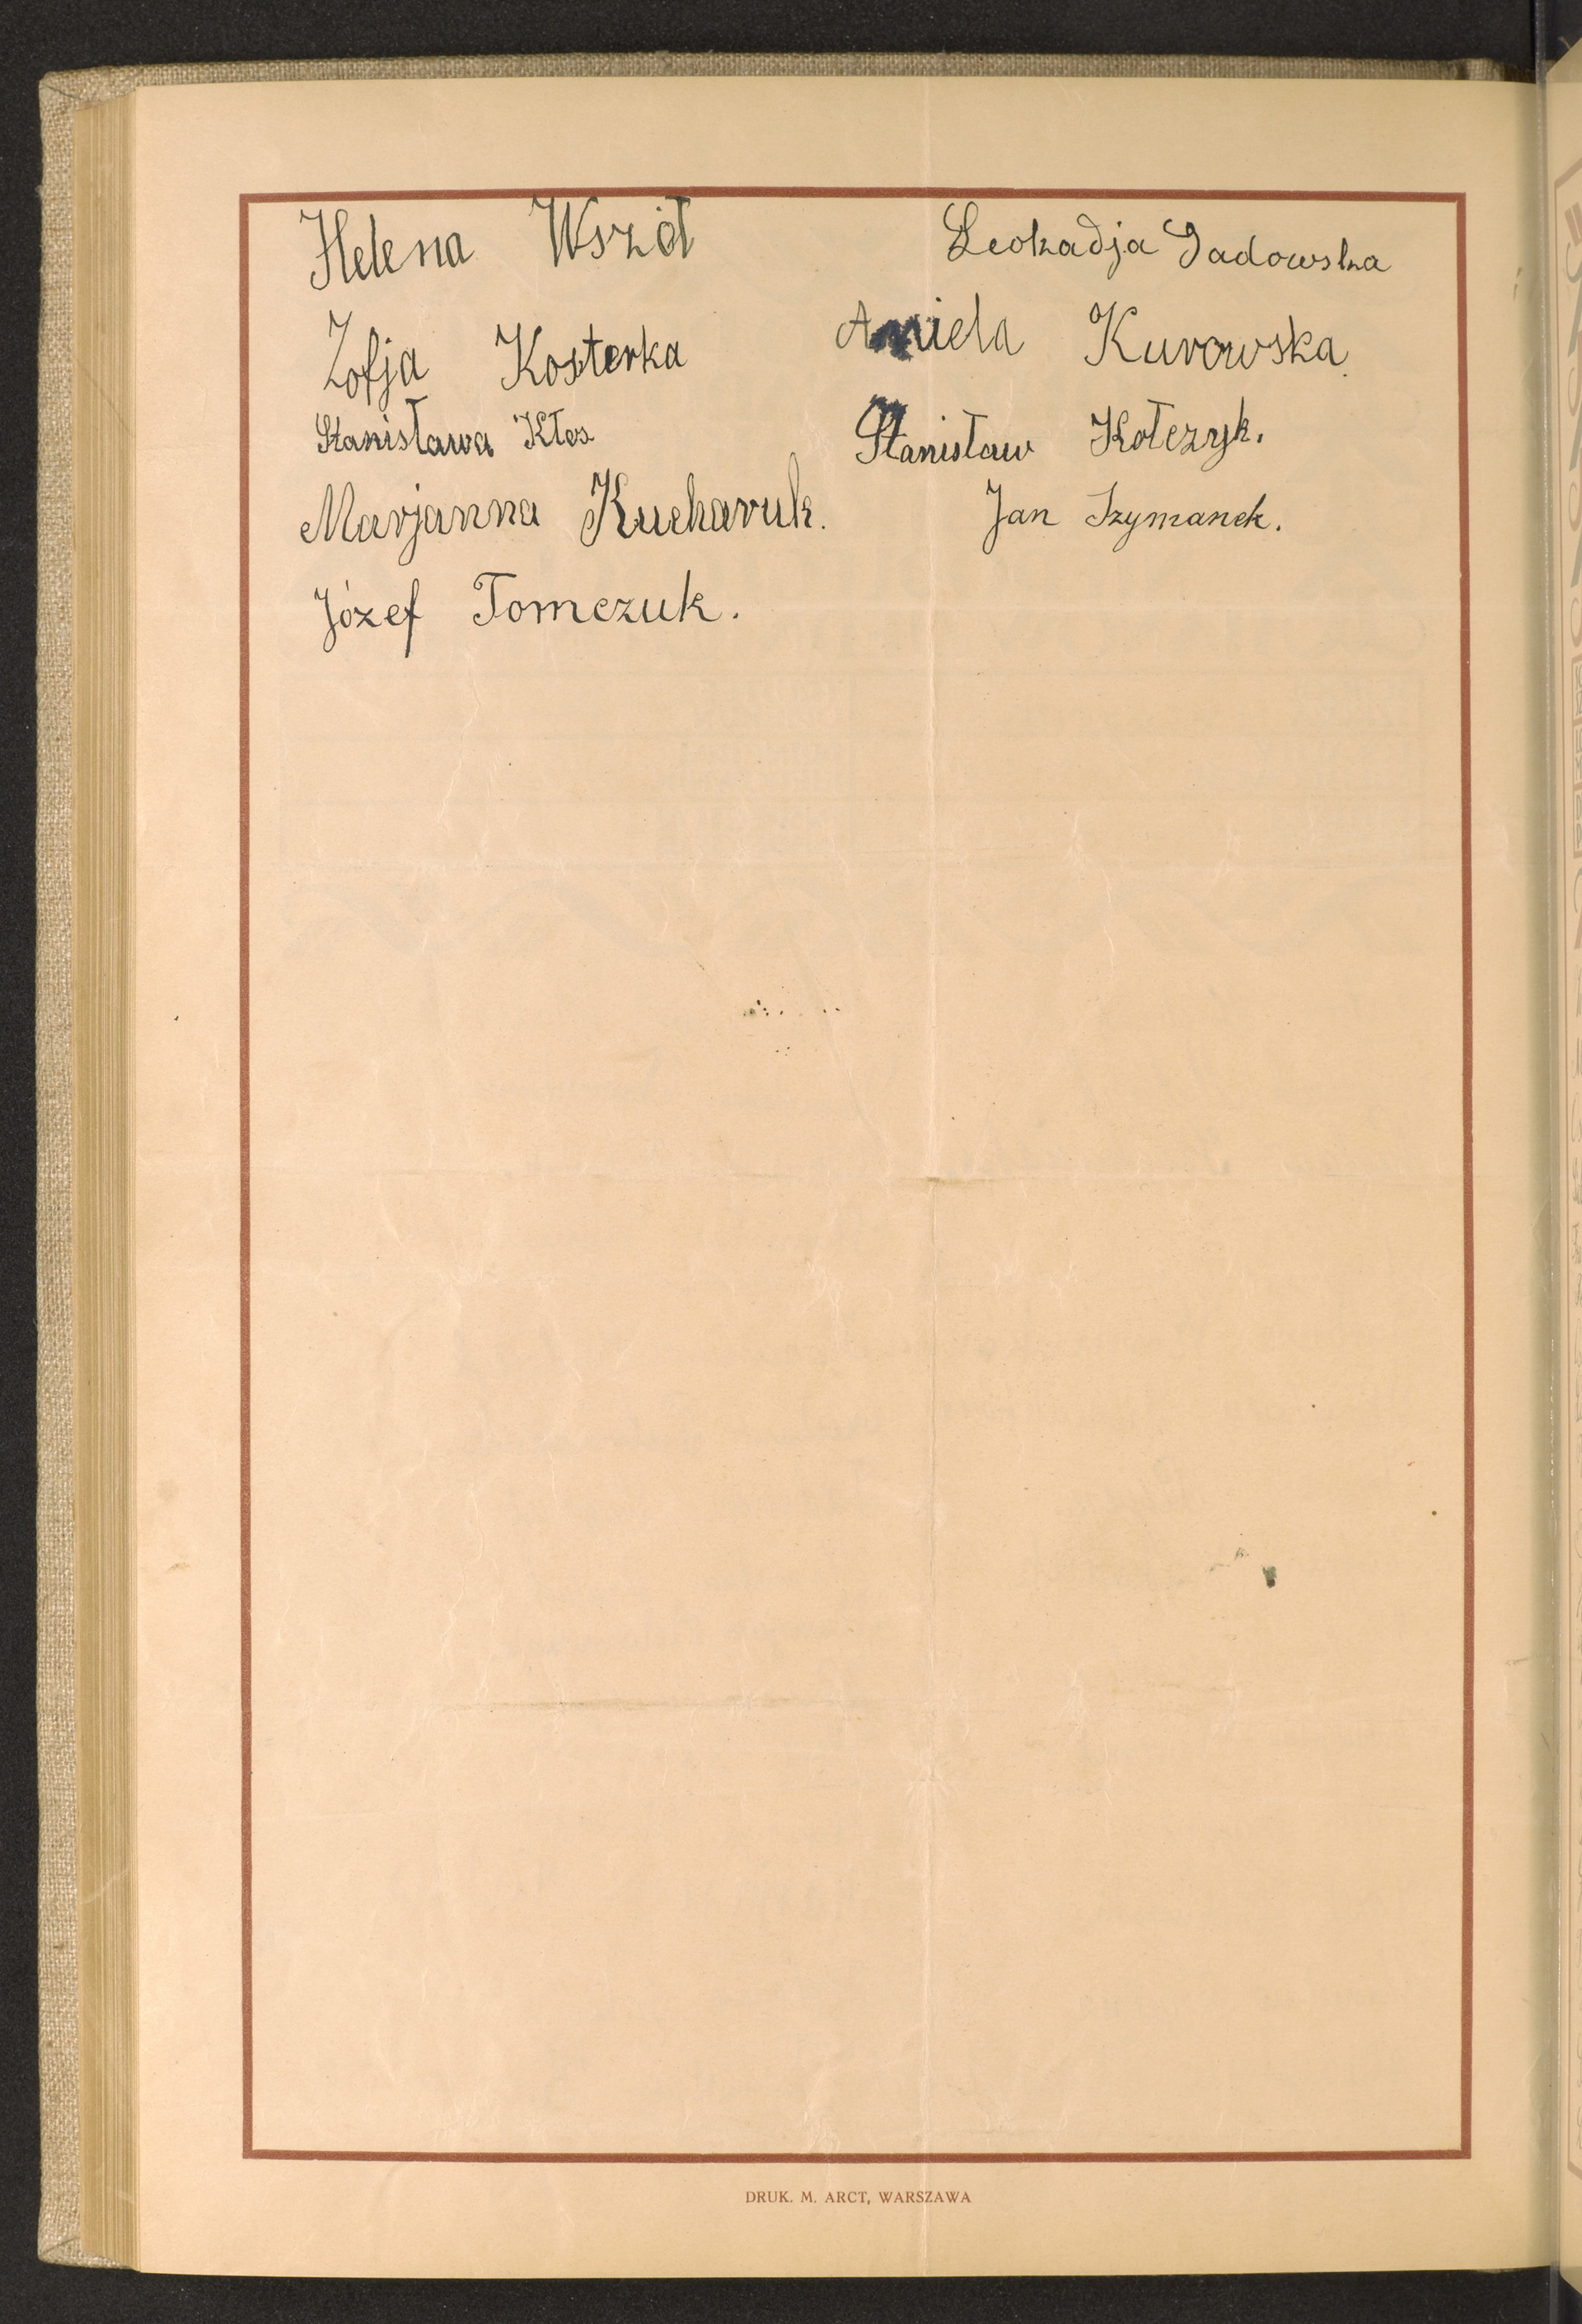 Helena Wszół
Leokadja Sadowska
Zofja Kosterka
Aniela Kurowska
Stanisława Kłos
Stanisław Kołczyk.
Marjanna Kucharuk.
Jan Szymanek.
Józef Tomczuk.
DRUK. M. ARCT, WARSZAWA